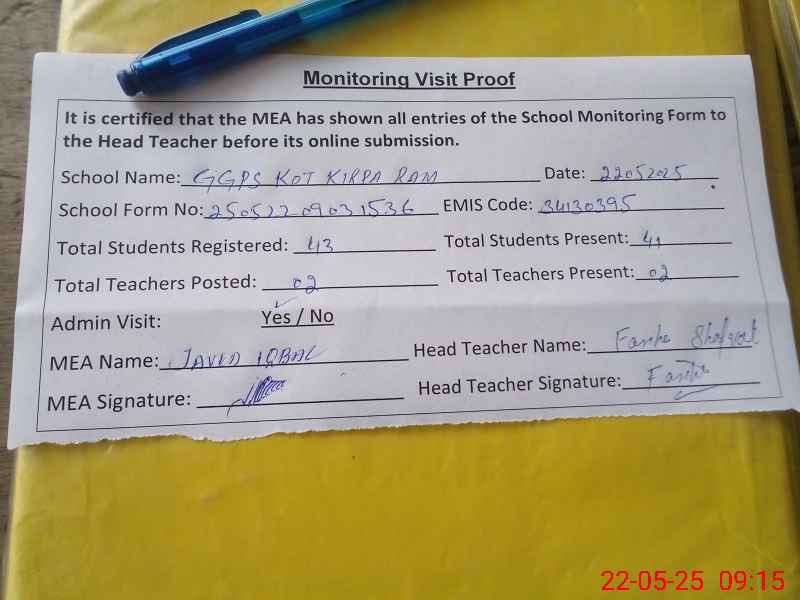 Monitoring Visit Proof
It is certified that the MEA has shown all entries of the School Monitoring Form to
the Head Teacher before its online submission.
School Name: GGPS KOT KIRPA RAM Date: 22052025
School Form No: 25052209031536 EMIS Code: 34130395
Total Students Registered: 43 Total Students Present: 41
Total Teachers Posted: 02 Total Teachers Present: 02
Admin Visit: Yes / No
MEA Name: JAVED IQBAL Head Teacher Name:
MEA Signature: Head Teacher Signature:
22-05-25 09:15